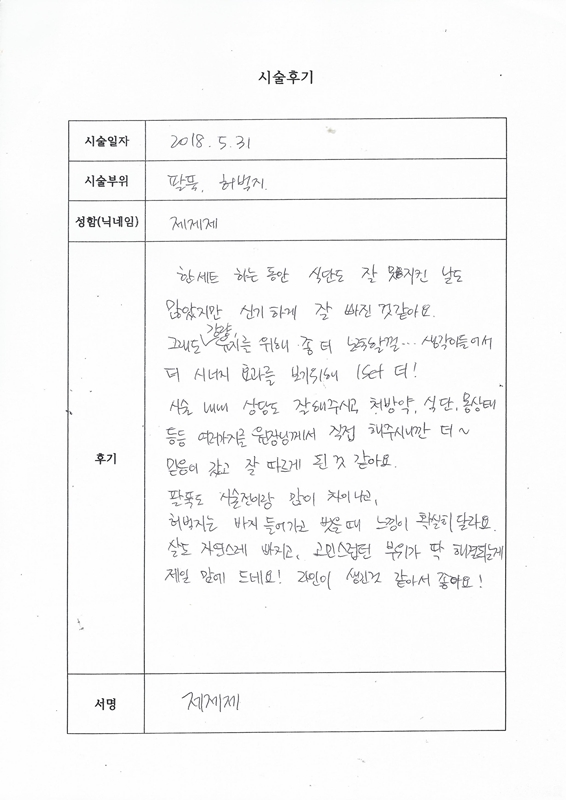 시술후기
시술일자 2018. 5. 31
시술부위 팔뚝, 허벅지.
성함(닉네임) 제제제
후기
한세트 하는 동안 식단도 잘 못지킨 날도
많았지만 신기하게 잘 빠진 것같아요.
그래도 감량, 유지를 위해 좀 더 노력할껄... 생각이들어서
더 시너지 효과를 보기위해 1set 더!
시술 내내 상담도 잘해주시고, 처방약, 식단, 몸상태
등등 여러가지를 원장님께서 직접 해주시니깐 더~
믿음이 갔고 잘 따르게 된 것 같아요.
팔뚝도 시술전이랑 많이 차이나고,
허벅지는 바지 들어가고 벗을때 느낌이 확실히 달라요.
살도 자연스레 빠지고, 고민스럽던 부위가 딱 해결되는게
제일 맘에 드네요! 라인이 생긴것 같아서 좋아요!
서명 제제제